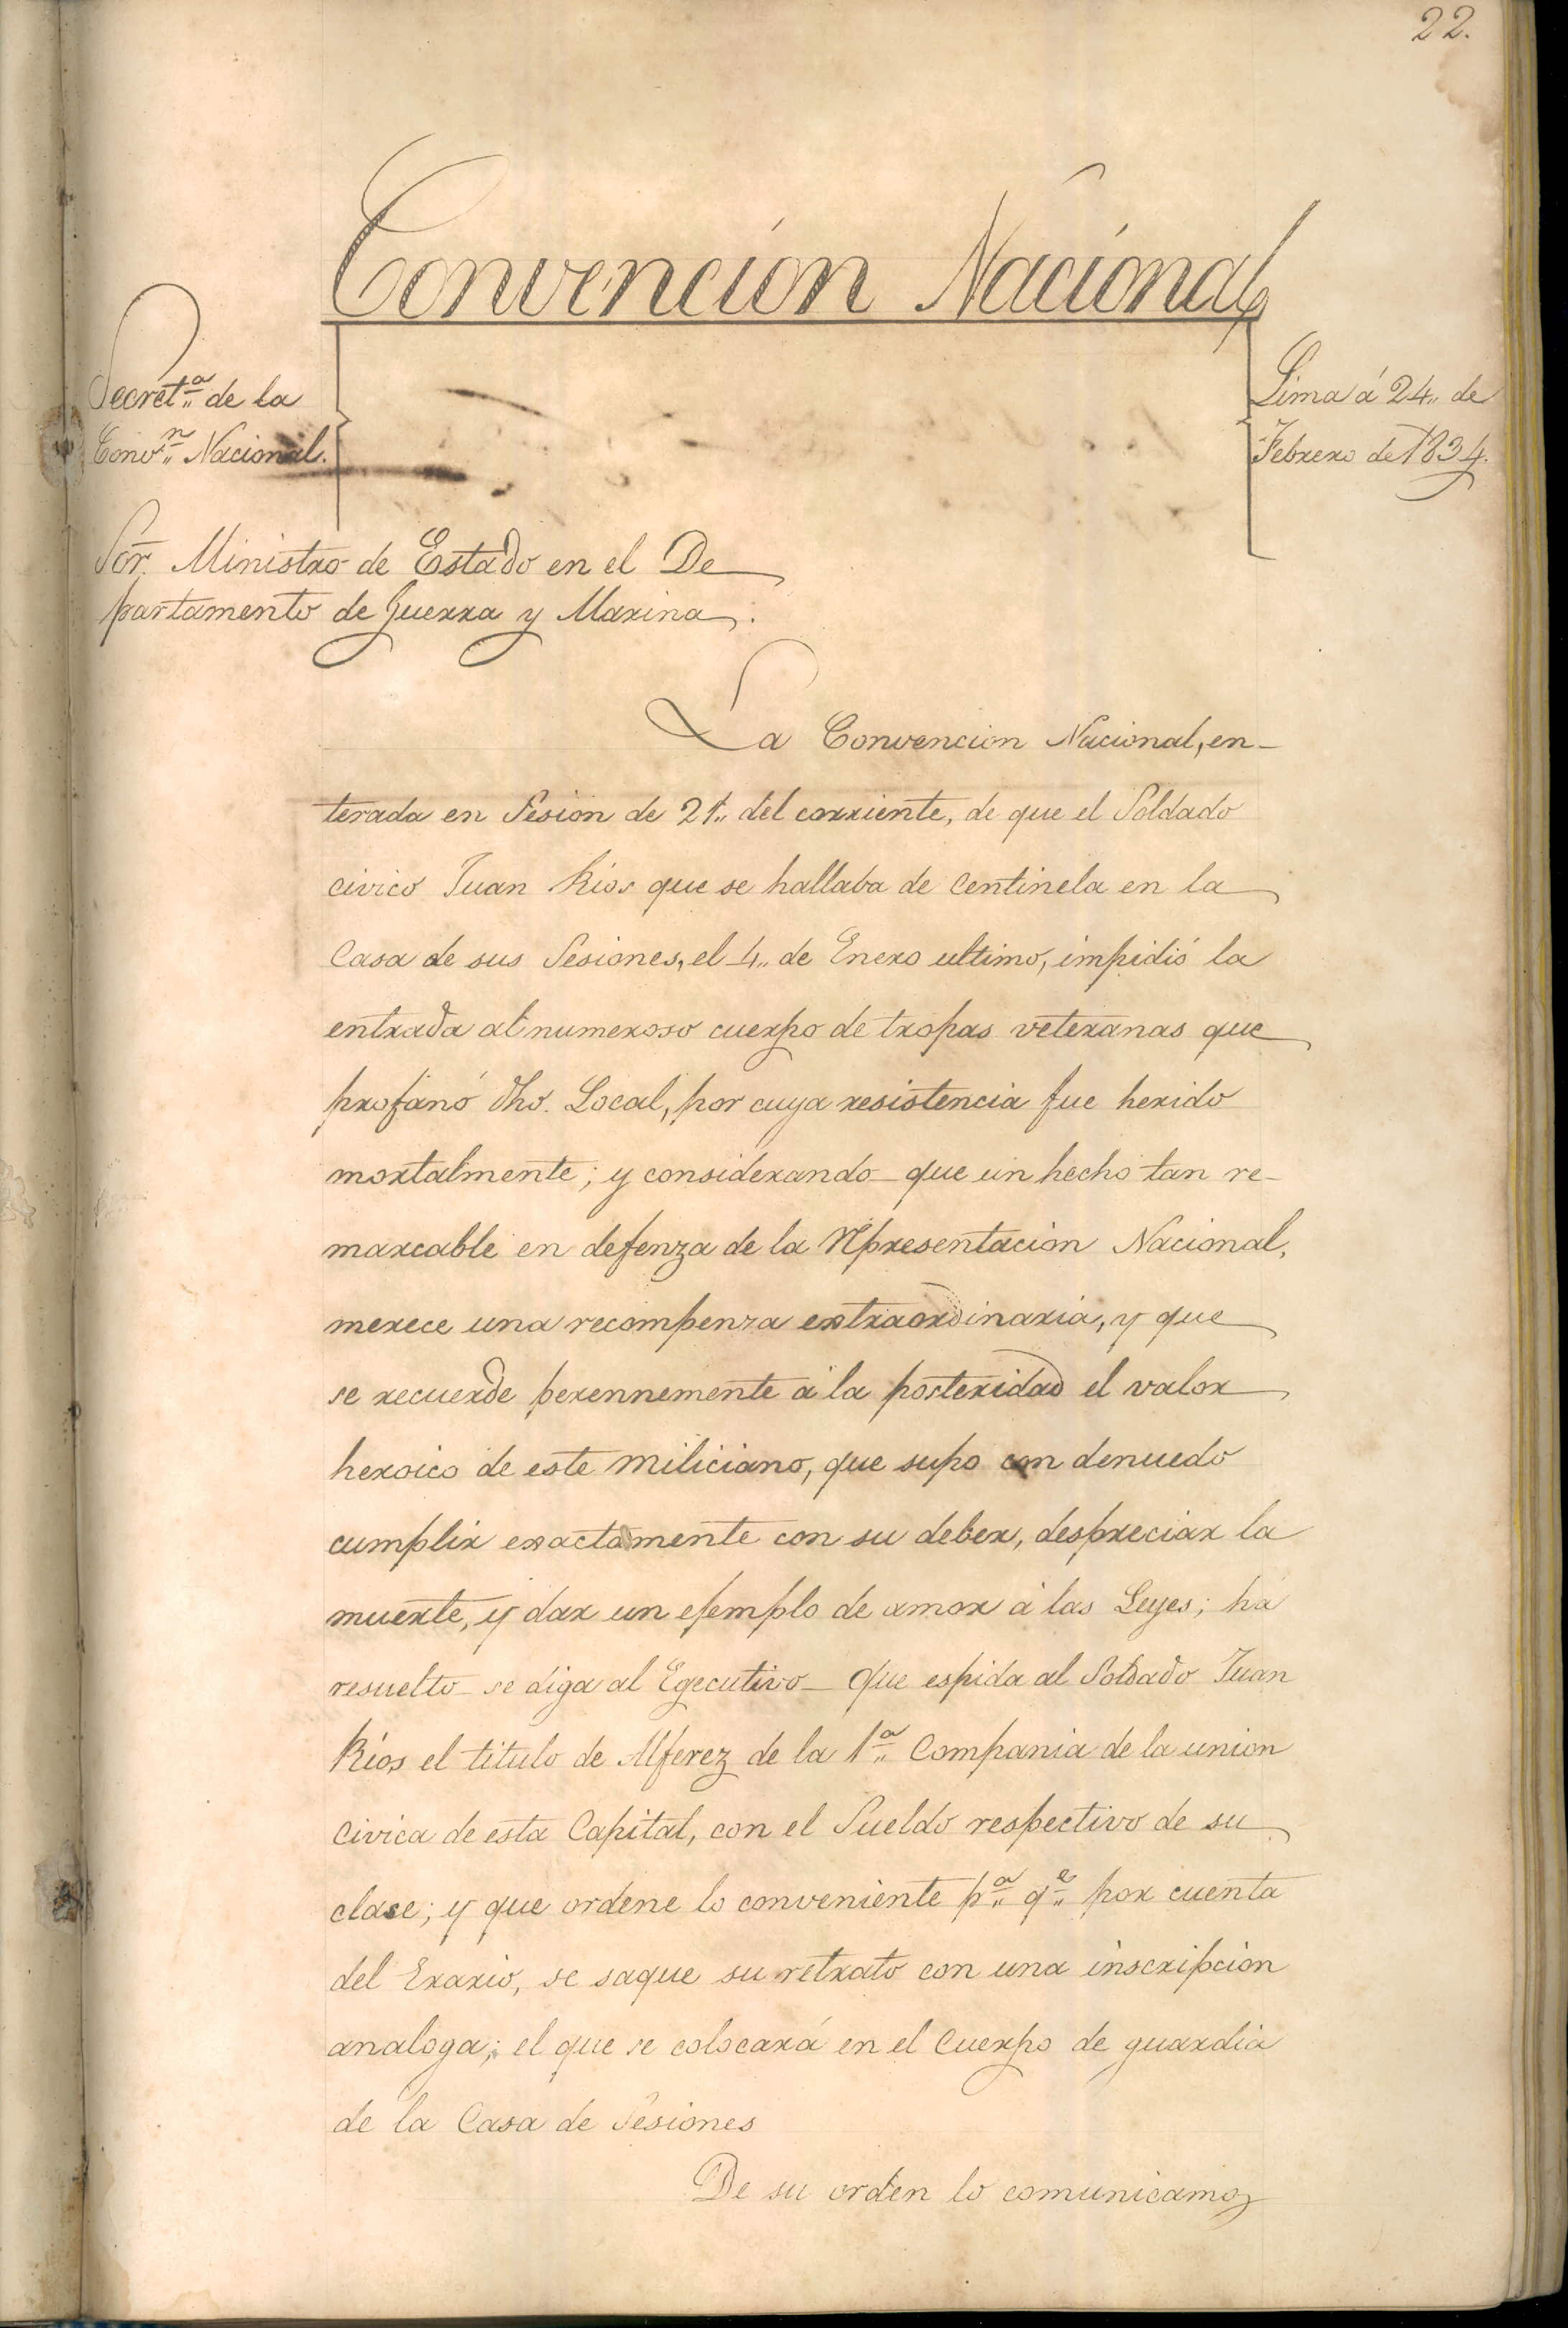 22.
Convención Nacional
Secret.ª de la
Conv.n Nacional.
Lima á 24,, de
Febrero de 1834.
Sor. Ministro de Estado en el De
partamento de Guerra y Marina.
La Convencion Nacional, en-
terada en Sesion de 21,, del corriente, de que el Soldado
civico Juan Rios que se hallaba de Centinela en la
Casa de sus Sesiones, el 4,, de Enero ultimo, impidió la
entrada al numeroso cuerpo de tropas veteranas que
profanó dho. Local, por cuya resistencia fue herido
mortalmente; y considerando que un hecho tan re-
marcable en defenza de la Representacion Nacional,
merece una recompenza extraordinaria, y que
se recuerde perennemente á la posteridad el valor
heroico de este Miliciano, que supo con denuedo
cumplir exactamente con su deber, despreciar la
muerte, y dar un ejemplo de amor á las Leyes; há
resuelto se diga al Egecutivo que espida al Soldado Juan
Rios el titulo de Alferez de la 1.ª Compania de la union
civica de esta Capital, con el Sueldo respectivo de su
clase; y que ordene lo conveniente p.ª q.e por cuenta
del Erario, se saque su retrato con una inscripcion
analoga; el que se colocará en el Cuerpo de guardia
de la Casa de Sesiones
De su orden lo comunicamos